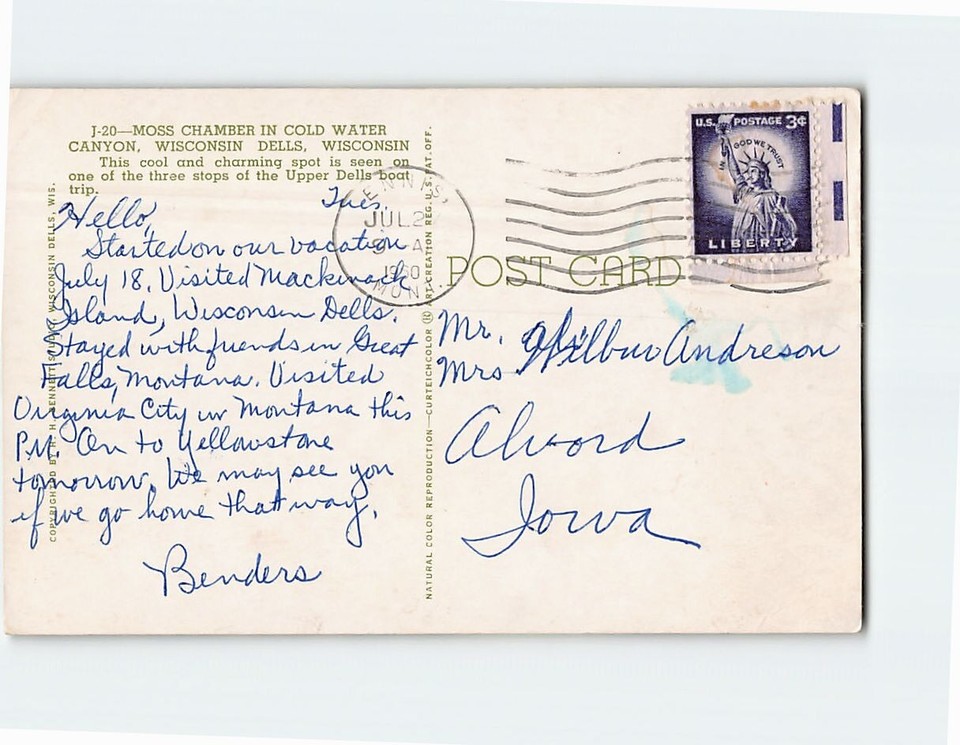 J-20—MOSS CHAMBER IN COLD WATER
CANYON, WISCONSIN DELLS, WISCONSIN
This cool and charming spot is seen on
one of the three stops of the Upper Dells boat
trip.
Tues.
Hello,
Started on our vacation
July 18. Visited Mackinack
Island, Wisconsin Dells.
Stayed with friends in Great
Falls, Montana. Visited
Virginia City in Montana this
P.M. On to Yellowstone
tomorrow. We may see you
if we go home that way.
Benders
COPYRIGHTED BY H. H. BENNETT STUDIO, WISCONSIN DELLS, WIS.
NATURAL COLOR REPRODUCTION—CURTEICHCOLOR ® ART-CREATION REG. U.S. PAT. OFF.
ENNIS,
JUL 2
A
1960
MONT.
POST CARD
U.S. POSTAGE 3¢
IN GOD WE TRUST
LIBERTY
Mr.
Mrs Wilbur Andreson
Alvord
Iowa